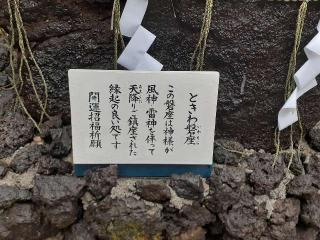 ときわ磐座
この磐座は神様が
風神 雷神を伴って
天降りご鎮座された
縁起の良い処です
開運招福祈願